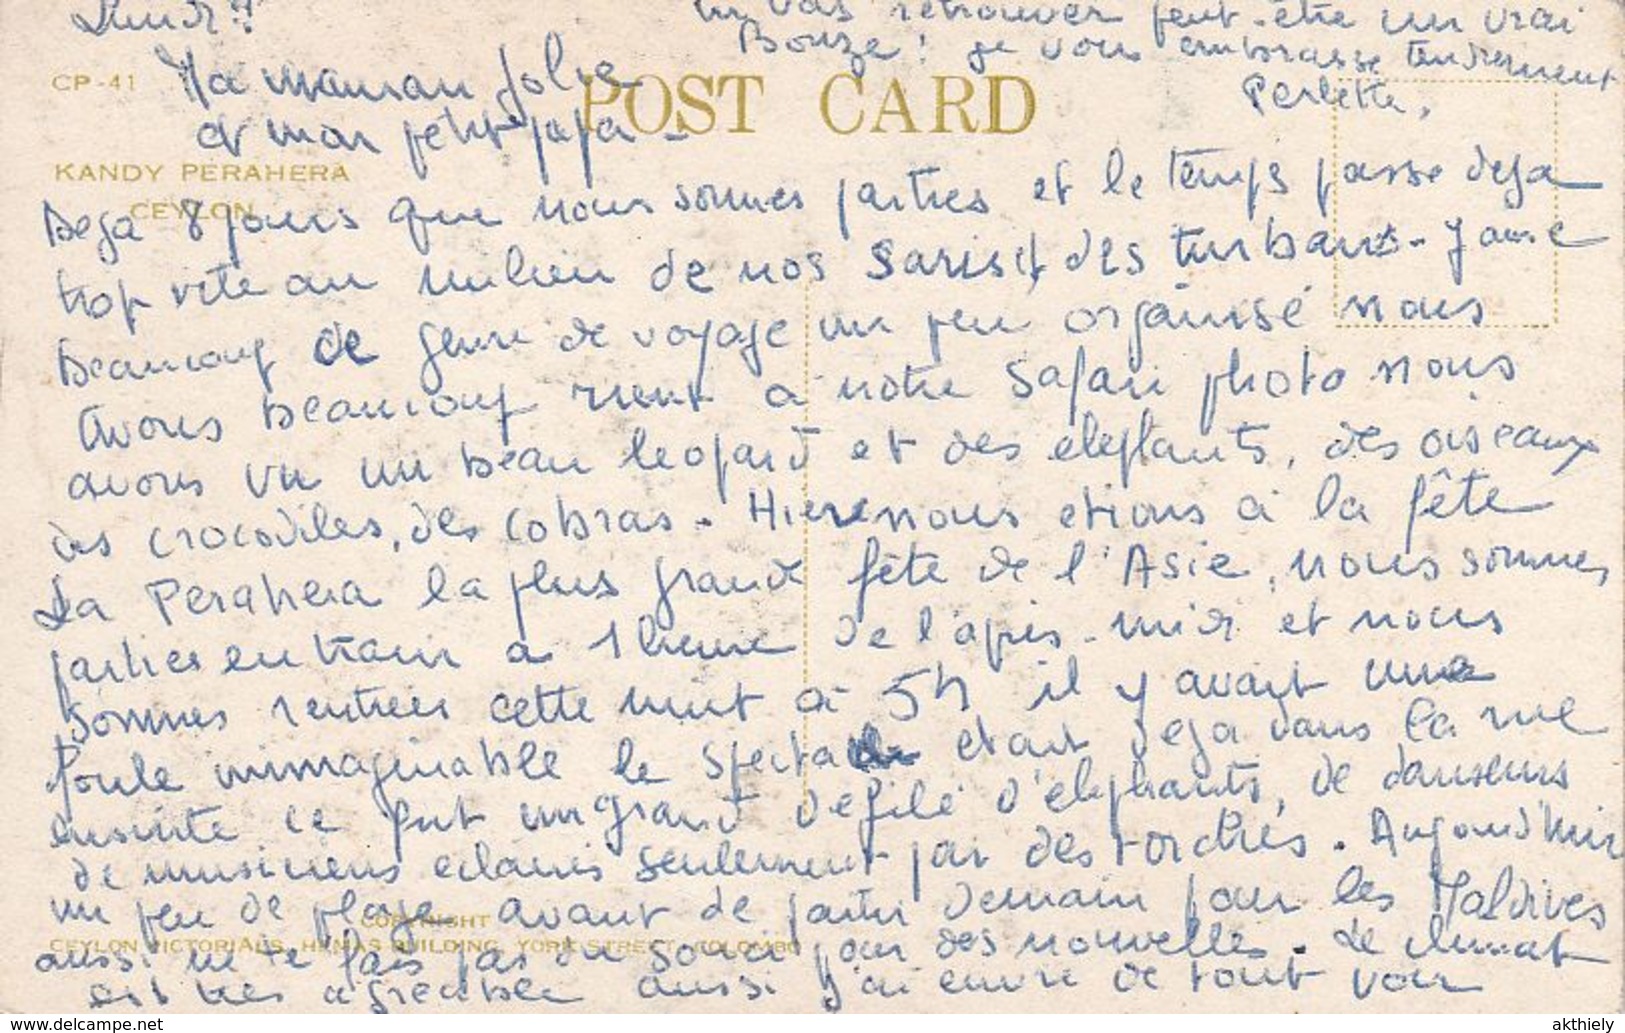 Lundi
Ma maman Jolie
et mon petit papa -
CP-41
POST CARD
KANDY PERAHERA
CEYLON
Deja 8 jours que nous sommes parties et le temps passe deja
trop vite au milieu de nos saris et des turbans - J'aime
beaucoup ce genre de voyage un peu organisé nous
avons beaucoup rient à notre safari photo nous
avons vu un beau leopard et des elephants, des oiseaux
des crocodiles, des cobras. Hier nous etions à la fête
La Perahera la plus grande fête de l'Asie, nous sommes
parties en train a 1 heure de l'apres-midi et nous
sommes rentrées cette nuit à 5h il y avait une
foule immaginable le spectacle etait deja dans la rue
ensuite ce fut un grand défilé d'elephants, de danseurs
de musiciens eclairés seulement par des torches. Aujourd'hui
un peu de plage avant de partir demain pour les Maldives
aussi ne te fais pas du souci pour des nouvelles. Le climat
est tres agreable aussi j'ai envie de tout voir
tu vas retrouver peut-être un vrai
Bonze! je vous embrasse tendrement
Perlette.
COPYRIGHT
CEYLON PICTORIALS, HEMAS BUILDING, YORK STREET, COLOMBO
akthiely